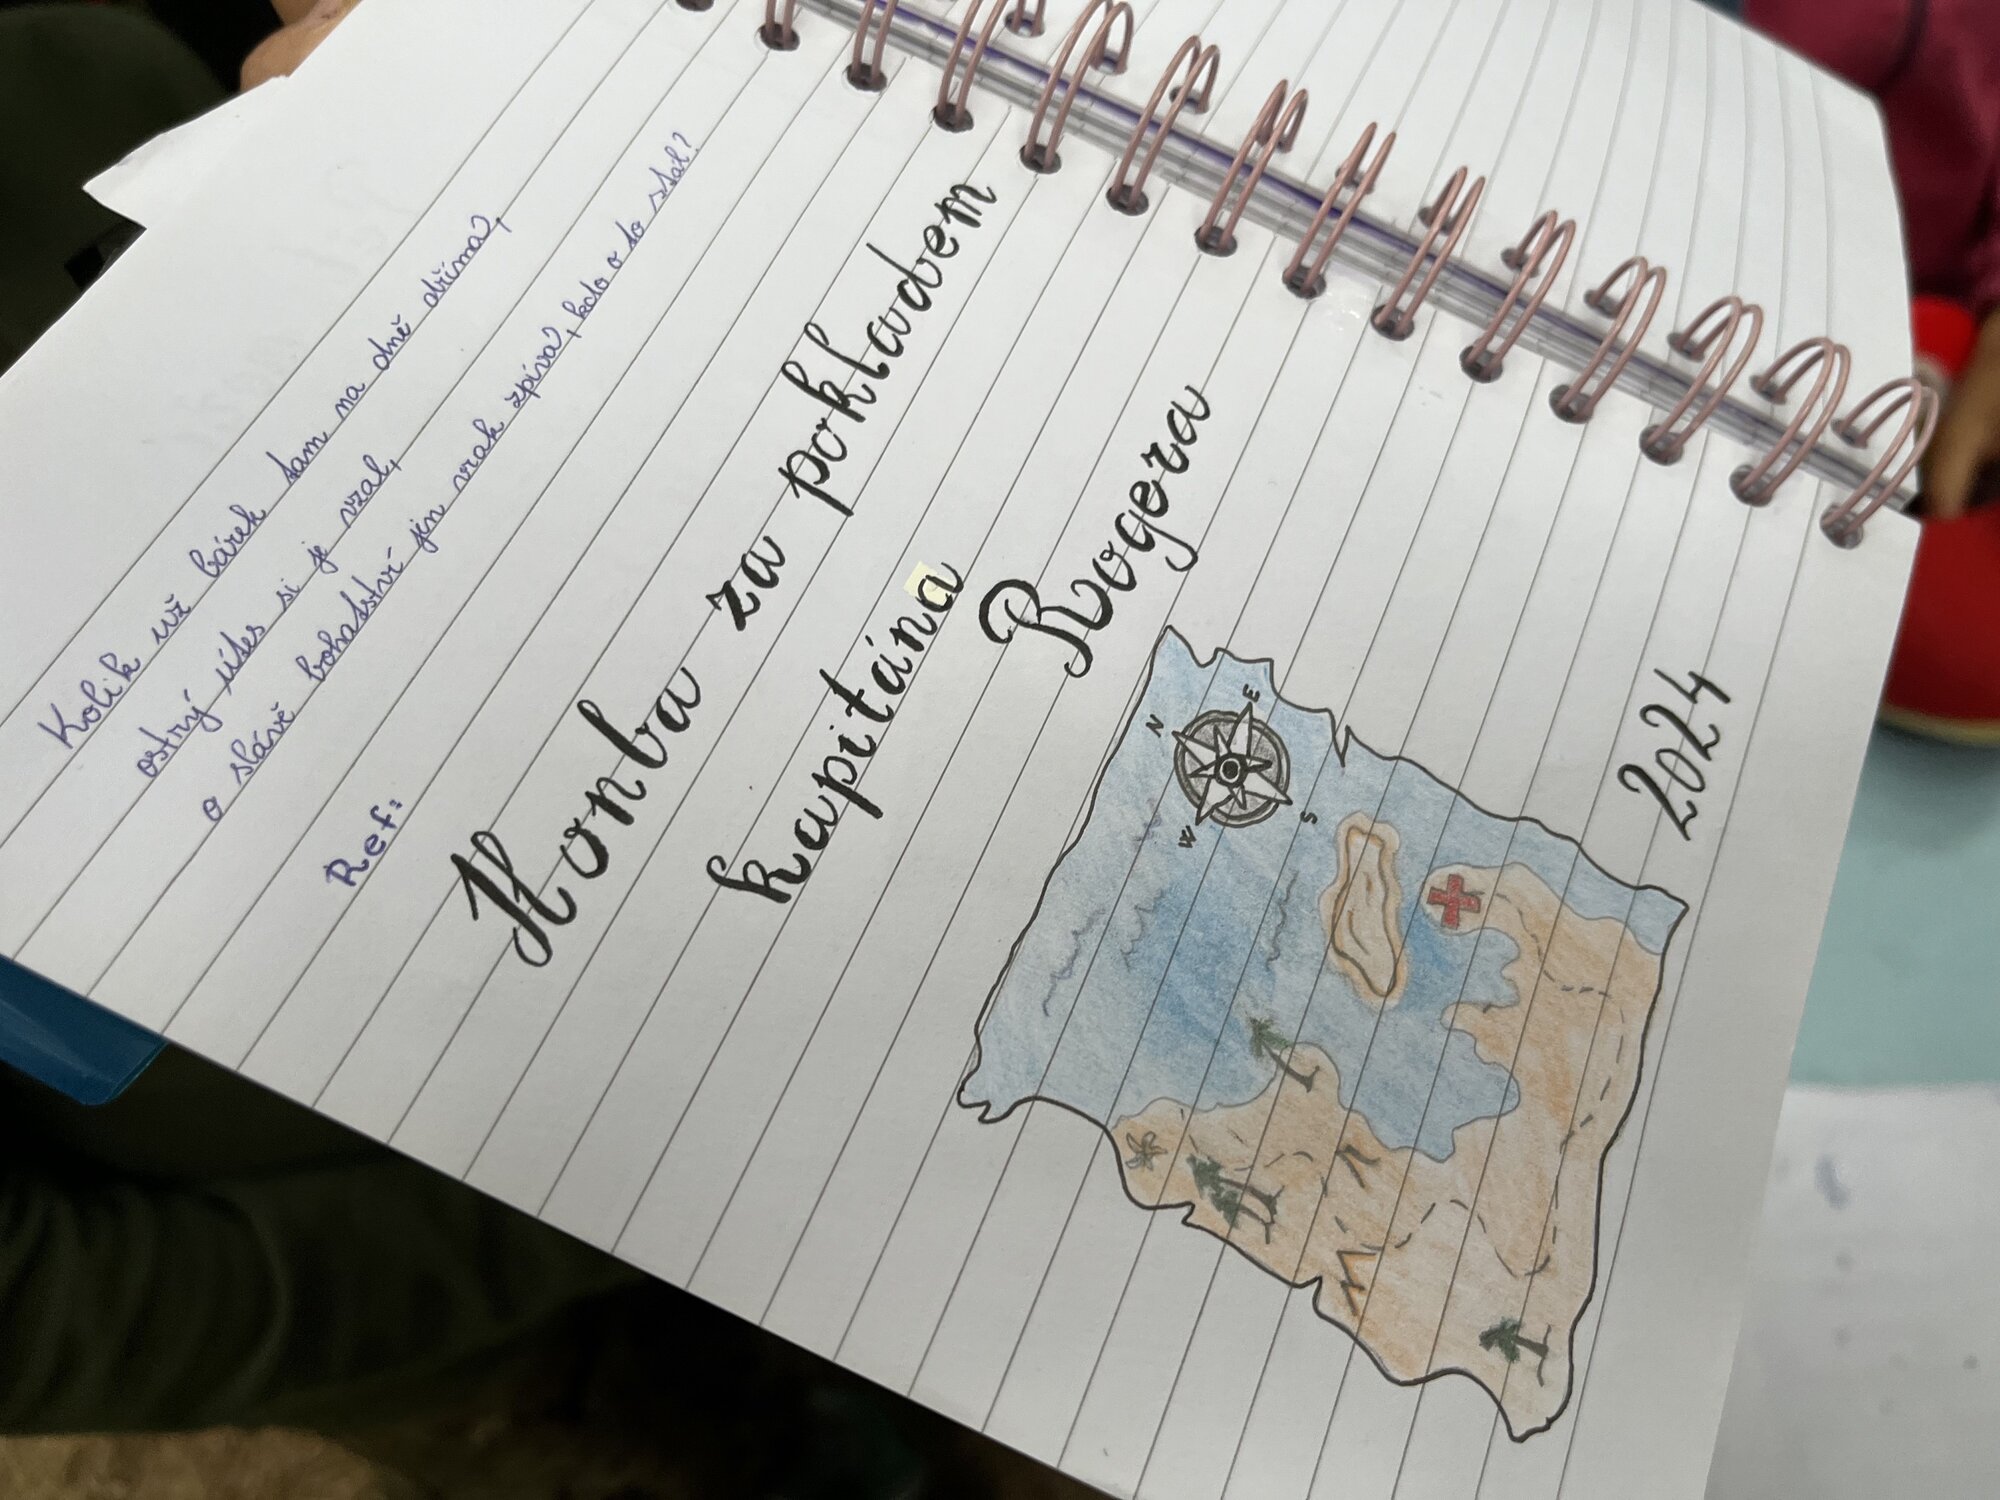 Kolik už bárek tam na dně dřímá,
ostrý útes si je vzal,
o slávě bohatství jen vrak zpívá, kdo o to stál?
Ref:
Honba za pokladem
kapitána
Rogera
N
E
W
S
2024